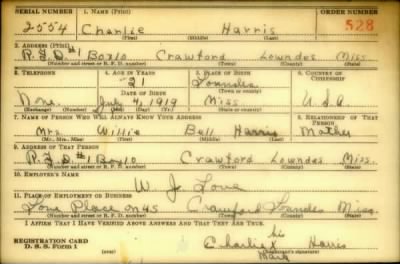 SERIAL NUMBER 1. NAME (Print) ORDER NUMBER
2554 Charlie Harris 528
(First) (Middle) (Last)
2. ADDRESS (Print)
R.F.D.#1 Box 10 Crawford Lowndes Miss.
(Number and street or R. F. D. number) (Town) (County) (State)
3. TELEPHONE 4. AGE IN YEARS 5. PLACE OF BIRTH 6. COUNTRY OF CITIZENSHIP
21 Lowndes
DATE OF BIRTH (Town or county)
None July 4, 1919 Miss U.S.A
(Exchange) (Number) (Mo.) (Day) (Yr.) (State or country)
7. NAME OF PERSON WHO WILL ALWAYS KNOW YOUR ADDRESS 8. RELATIONSHIP OF THAT PERSON
Mrs. Willie Bell Harris Mother
(Mr., Mrs., Miss) (First) (Middle) (Last)
9. ADDRESS OF THAT PERSON
R.F.D.#1 Box 10 Crawford Lowndes Miss.
(Number and street or R. F. D. number) (Town) (County) (State)
10. EMPLOYER'S NAME
W. J. Love
11. PLACE OF EMPLOYMENT OR BUSINESS
Love Place on 45 Crawford Lowndes Miss.
(Number and street or R. F. D. number) (Town) (County) (State)
I AFFIRM THAT I HAVE VERIFIED ABOVE ANSWERS AND THAT THEY ARE TRUE.
REGISTRATION CARD his
D. S. S. Form 1 Charlie X Harris
(over) mark (Registrant's signature)